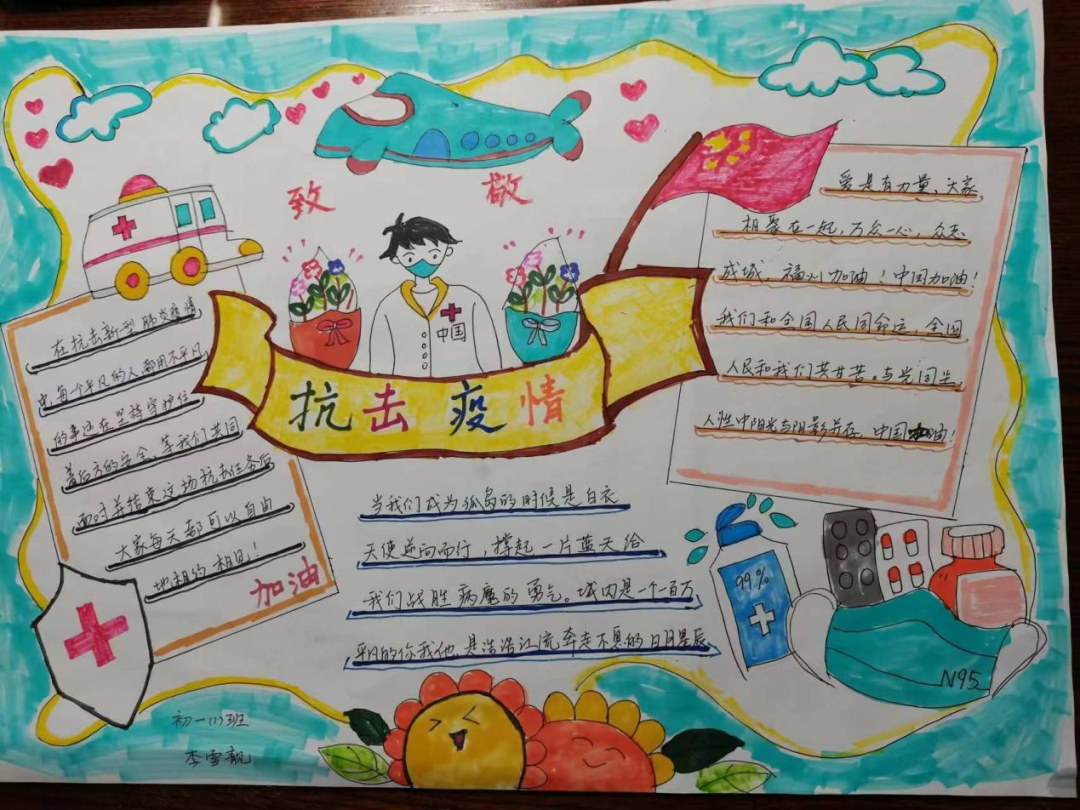 致 敬
中国
抗击疫情
在抗击新型肺炎疫情
中,每个平凡的人都用不平凡
的事迹在坚持守护住
着后方的安全,等我们共同
面对并结束这场抗击任务后
大家每天都可以自由
地相约相见!
加油
爱是有力量,大家
相聚在一起,万众一心,众志
成城,福州加油!中国加油!
我们和全国人民同命运,全国
人民和我们共甘苦。与光同尘
人性中阳光与阴影并存,中国加油!
当我们成为孤岛的时候是白衣
天使逆向而行,撑起一片蓝天给
我们战胜病魔的勇气。城内是一个百万
平凡的你我他,是浩浩江流,奔走不息的日月星辰
99%
N95
初一(1)班
李雪靓